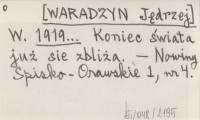 [WARADZYN Jędrzej]
W. 1919... Koniec świata
już sie zbliża. — Nowiny
Spisko-Orawskie 1, nr 4.